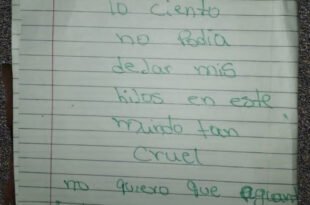 lo ciento
no Podia
dejar mis
hijos en este
mundo tan
cruel
no quiero que aguant